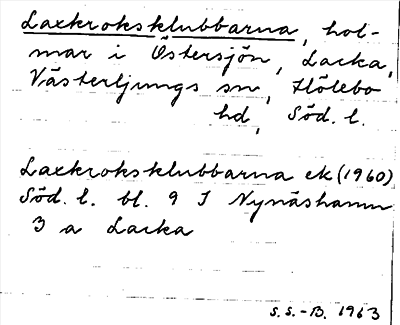 Laxkroksklubbarna, hol-
mar i Östersjön, Lacka,
Västerljungs sn, Hölebo
hd, Söd. l.
Laxkroksklubbarna ek (1960)
Söd. l. bl. 9 I Nynäshamn
3 a Lacka
S.S.-B. 1963